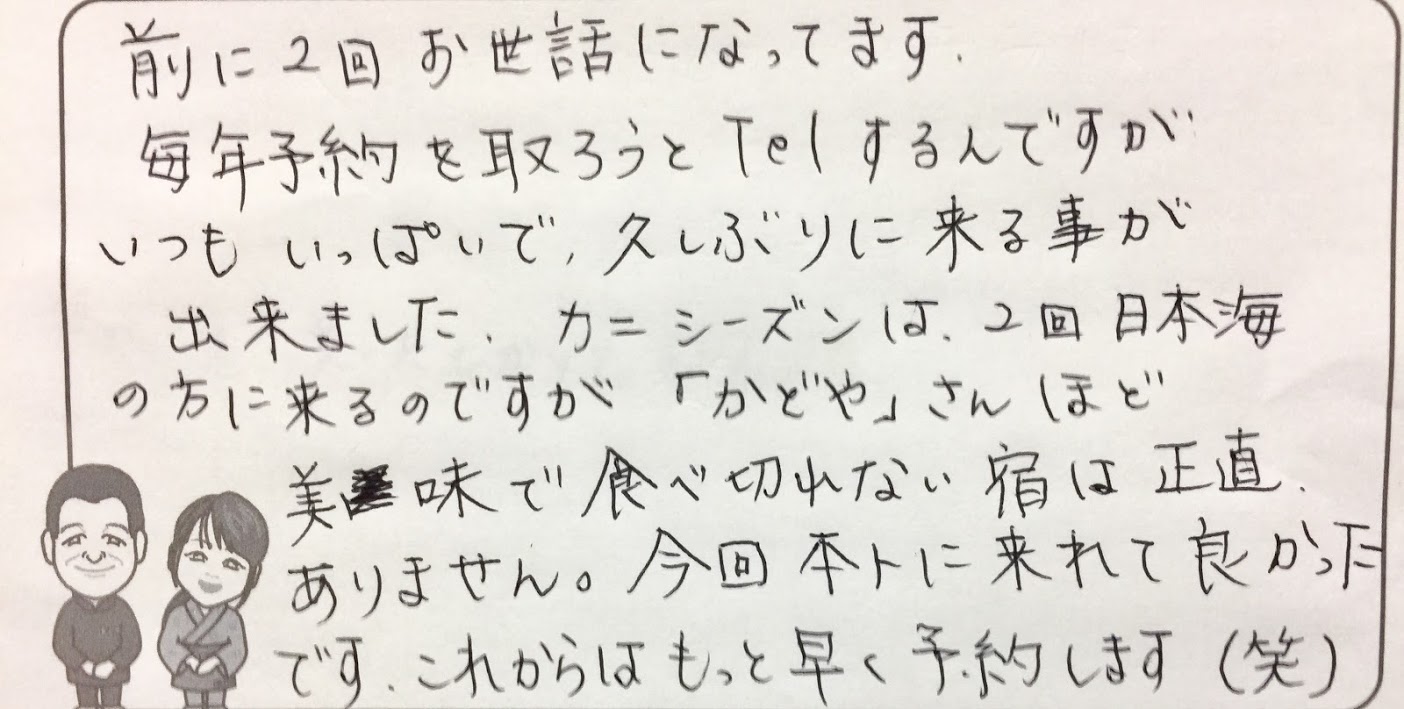 前に2回お世話になってます.
毎年予約を取ろうとTelするんですが
いつもいっぱいで,久しぶりに来る事が
出来ました.カニシーズンは.2回日本海
の方に来るのですが「かどや」さんほど
美味で食べ切れない宿は正直.
ありません。今回本トに来れて良かった
です.これからはもっと早く予約します(笑)